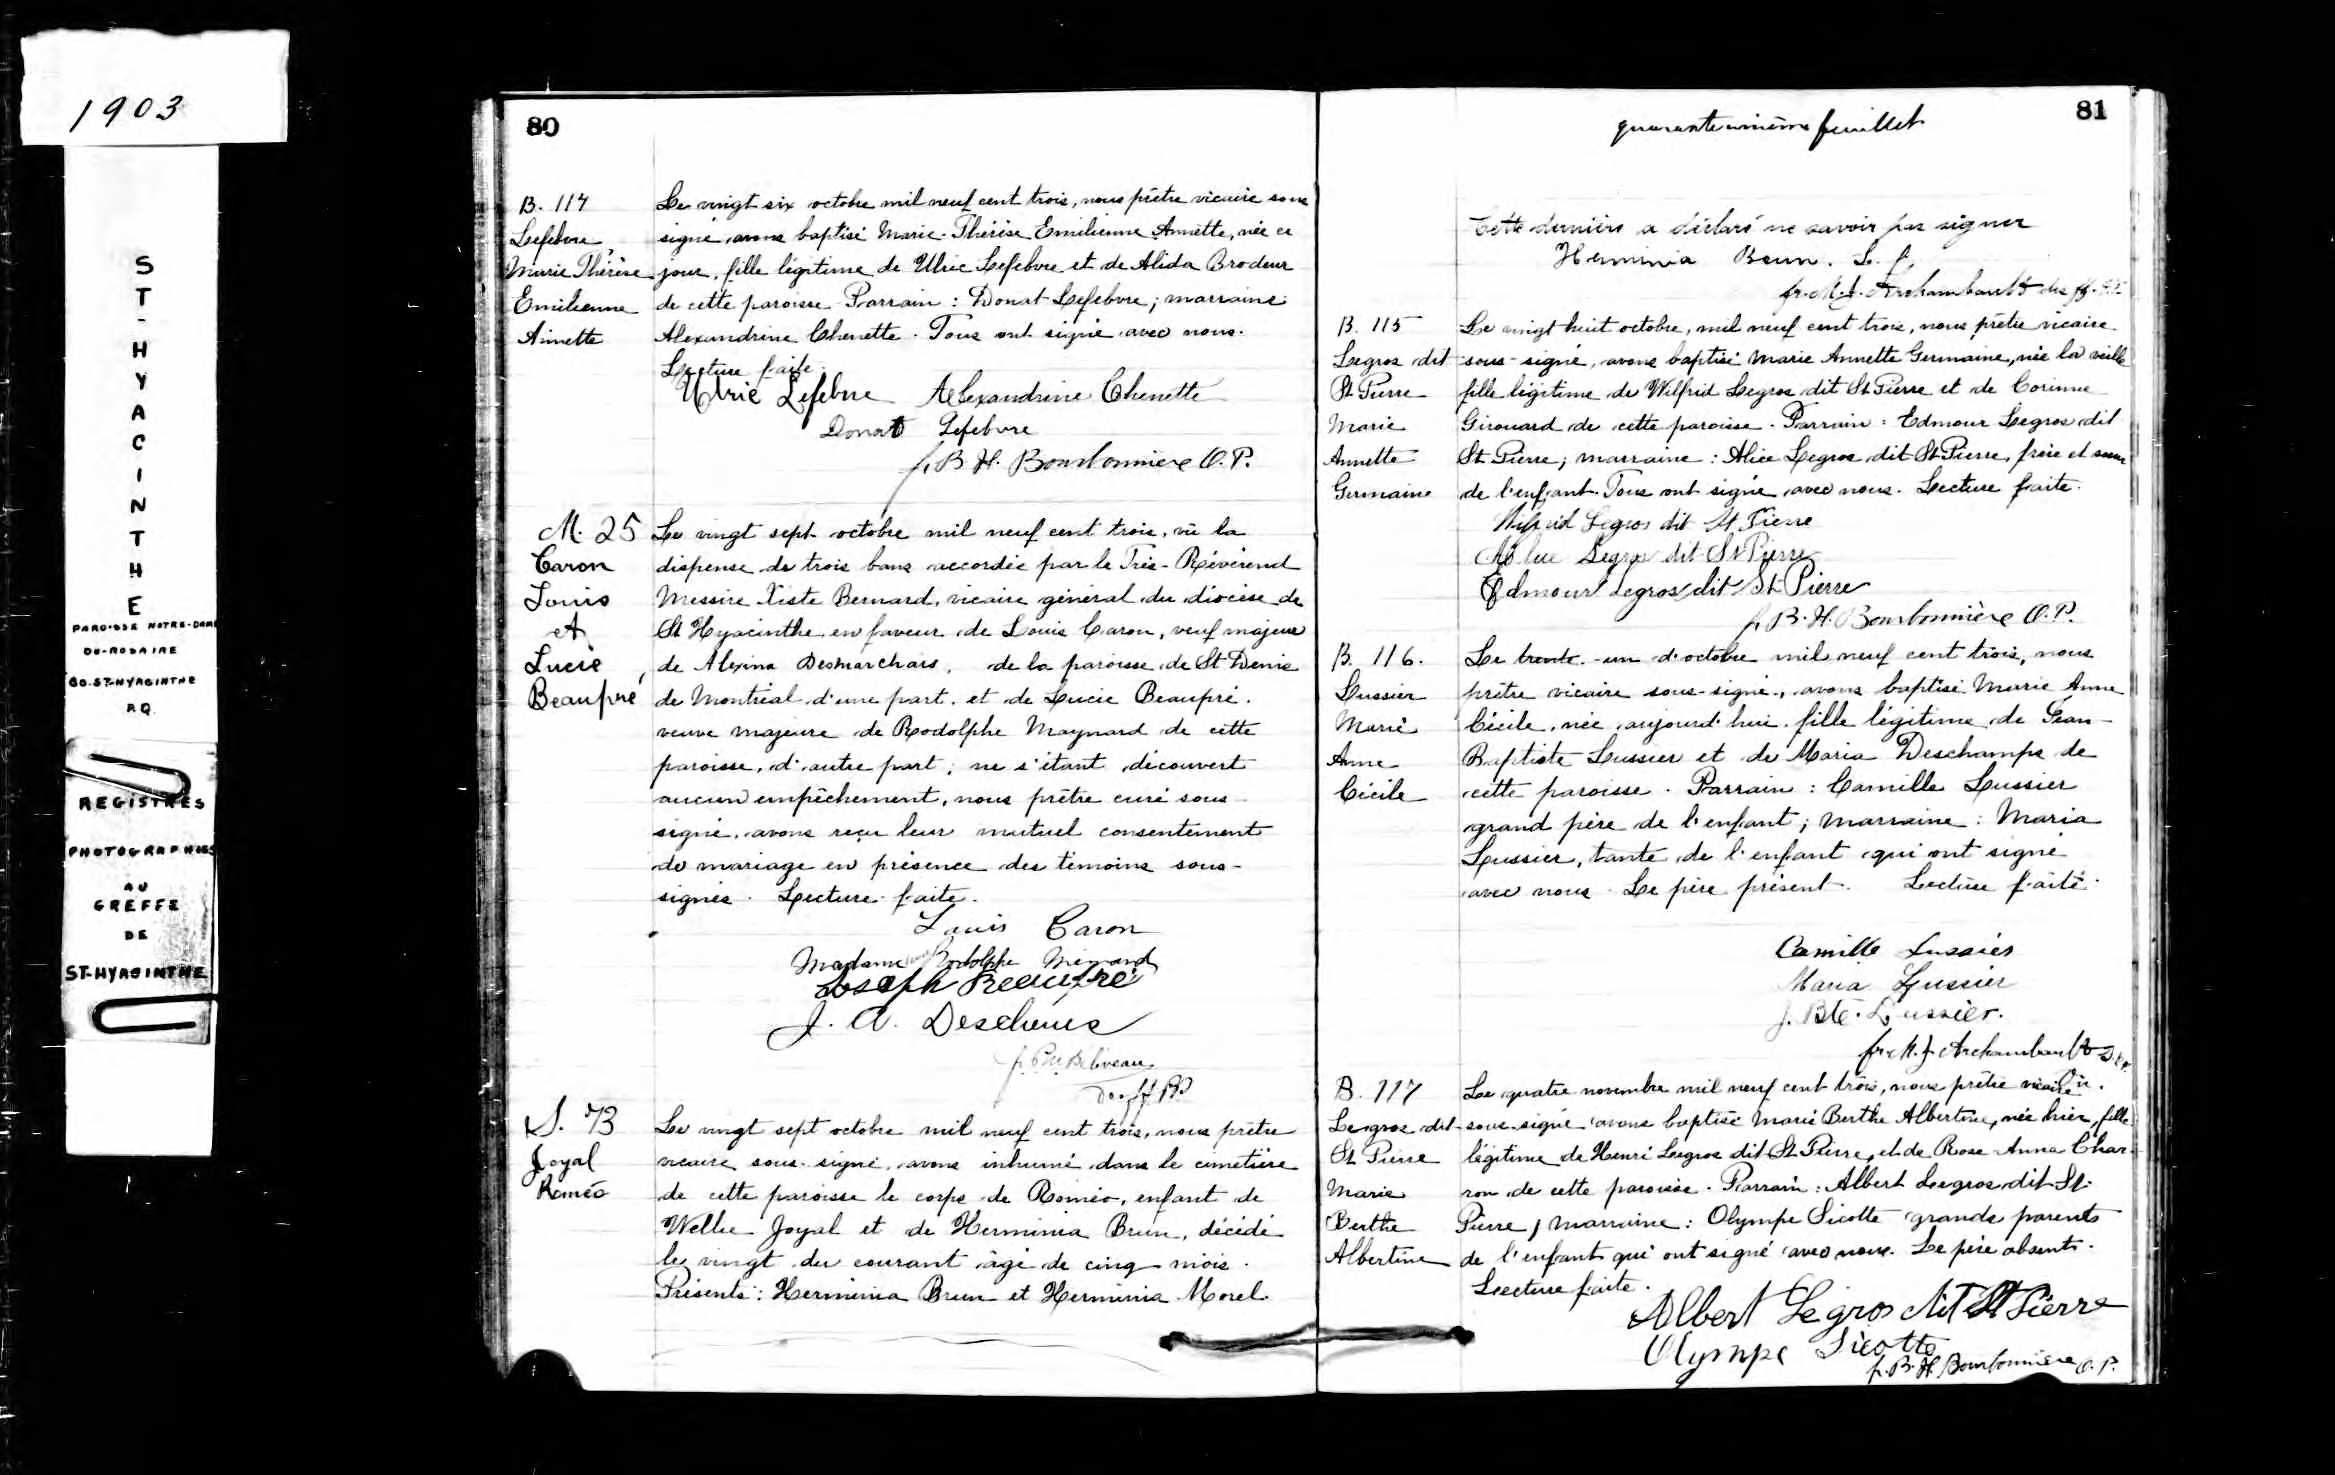 1903
ST-HYACINTHE
PAROISSE NOTRE-DAME
DU-ROSAIRE
CO.ST-HYACINTHE
P.Q.
REGISTRES
PHOTOGRAPHIES
AU
GREFFE
DE
ST-HYACINTHE
80
B. 114
Lefebvre,
Marie Thérèse
Emilienne
Annette
Le vingt six octobre mil neuf cent trois, nous prêtre vicaire sous
signé, avons baptisé Marie-Thérèse Emilienne Annette, née ce
jour, fille légitime de Ulric Lefebvre et de Alida Brodeur
de cette paroisse. Parrain : Donat Lefebvre ; marraine
Alexandrine Chenette. Tous ont signé avec nous.
Lecture faite.
Ulric Lefebvre Alexandrine Chenette
Donat Lefebvre
f. B. H. Bourbonnière O. P.
M. 25
Caron
Louis
et
Lucie
Beaupré
Le vingt sept octobre mil neuf cent trois, vu la
dispense de trois bans accordée par le Très-Révérend
Messire Xiste Bernard, vicaire général du diocèse de
St Hyacinthe en faveur de Louis Caron, veuf majeur
de Alexina Desmarchais, de la paroisse de St Denis
de Montréal d'une part, et de Lucie Beaupré,
veuve majeure de Rodolphe Maynard de cette
paroisse, d'autre part ; ne s'étant découvert
aucun empêchement, nous prêtre curé sous-
signé, avons reçu leur mutuel consentement
de mariage en présence des témoins sous-
signés. Lecture faite.
Louis Caron
Madame Rodolphe Ménard
Joseph Beaupré
J. A. Deschenes
S. 73
Joyal
Roméo
Le vingt sept octobre mil neuf cent trois, nous prêtre
vicaire sous-signé, avons inhumé dans le cimetière
de cette paroisse le corps de Roméo, enfant de
Wellie Joyal et de Herminia Brun, décédé
le vingt du courant âgé de cinq mois.
Présents : Herminia Brun et Herminia Morel.
quarante unième feuillet
81
Cette dernière a déclaré ne savoir pas signer
Herminia Brun. L. f.
fr. M. J. Archambault des ff.
B. 115
Legros dit
St Pierre
Marie
Annette
Germaine
Le vingt huit octobre, mil neuf cent trois, nous prêtre vicaire
sous-signé, avons baptisé Marie Annette Germaine, née la veille
fille légitime de Wilfrid Legros dit St Pierre et de Corinne
Girouard de cette paroisse. Parrain : Edmour Legros dit
St Pierre ; marraine : Alice Legros dit St Pierre, frère et soeur
de l'enfant. Tous ont signé avec nous. Lecture faite.
Wilfrid Legros dit St Pierre
Legros dit St Pierre
Edmour Legros dit St Pierre
f. B. H. Bourbonnière O. P.
B. 116.
Lussier
Marie
Anne
Cécile
Le trente-un d'octobre mil neuf cent trois, nous
prêtre vicaire sous-signé, avons baptisé Marie Anne
Cécile, née aujourd'hui, fille légitime de Jean-
Baptiste Lussier et de Maria Deschamps de
cette paroisse. Parrain : Camille Lussier
grand père de l'enfant ; marraine : Maria
Lussier, tante de l'enfant qui ont signé
avec nous. Le père présent. Lecture faite.
Camille Lussier
Maria Lussier
J. Bte. Lussier.
fr. M. J. Archambault
B. 117
Legros dit
St Pierre
Marie
Berthe
Albertine
Le quatre novembre mil neuf cent trois, nous prêtre vicaire
sous-signé avons baptisé Marie Berthe Albertine, née hier, fille
légitime de Henri Legros dit St Pierre, et de Rose Anna Char-
ron de cette paroisse. Parrain : Albert Legros dit St-
Pierre ; marraine : Olympe Sicotte grands parents
de l'enfant qui ont signé avec nous. Le père absent.
Lecture faite.
Albert Legros dit St Pierre
Olympe Sicotte
f. B. H. Bourbonnière O. P.